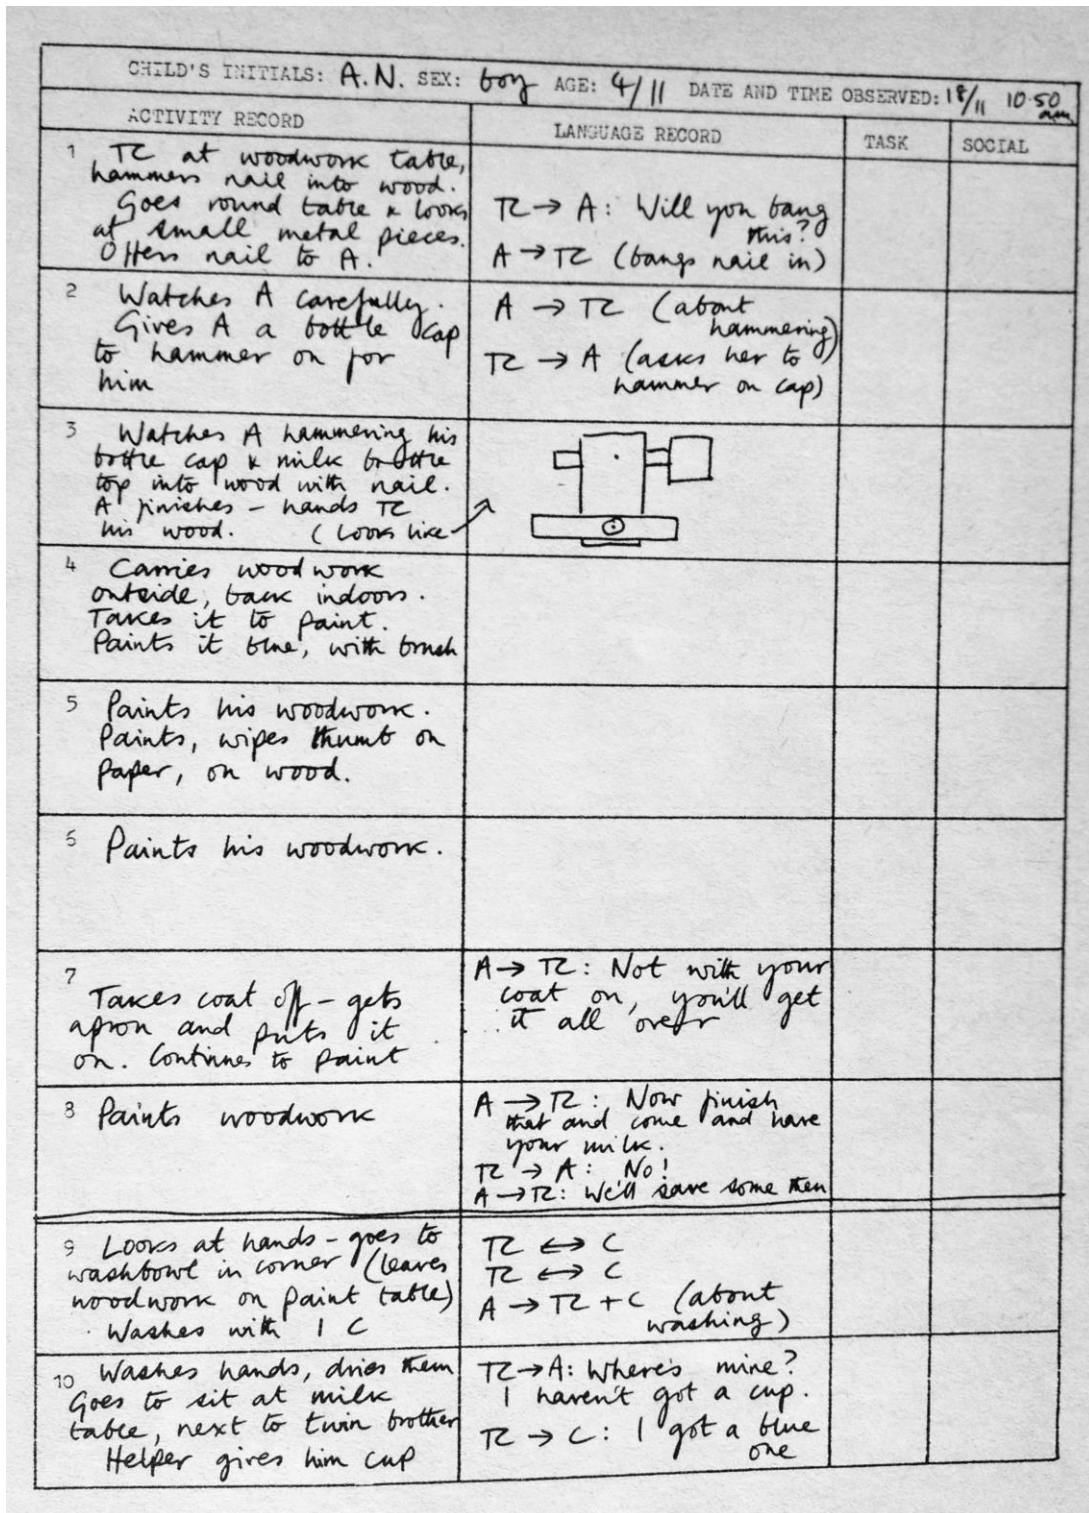 CHILD'S INITIALS: A.N. SEX: boy AGE: 4/11 DATE AND TIME OBSERVED: 18/11 10.50 am
ACTIVITY RECORD
LANGUAGE RECORD
TASK
SOCIAL
1 TC at woodwork table,
hammers nail into wood.
Goes round table & looks
at small metal pieces.
Offers nail to A.
TC → A: Will you bang
this?
A → TC (bangs nail in)
2 Watches A carefully.
Gives A a bottle cap
to hammer on for
him
A → TC (about
hammering)
TC → A (asks her to
hammer on cap)
3 Watches A hammering his
bottle cap & milk bottle
top into wood with nail.
A finishes - hands TC
his wood. (Looks like
4 Carries woodwork
outside, back indoors.
Takes it to paint.
Paints it blue, with brush
5 Paints his woodwork.
Paints, wipes thumb on
paper, on wood.
6 Paints his woodwork.
7
Takes coat off - gets
apron and puts it
on. Continues to paint
A → TC: Not with your
coat on, you'll get
it all over
8 Paints woodwork
A → TC: Now finish
that and come and have
your milk.
TC → A: No!
A → TC: We'll save some then
9 Looks at hands - goes to
washbowl in corner (leaves
woodwork on paint table)
Washes with 1 C
TC ↔ C
TC ↔ C
A → TC + C (about
washing)
10 Washes hands, dries them
Goes to sit at milk
table, next to twin brother
Helper gives him cup
TC → A: Where's mine?
I haven't got a cup.
TC → C: I got a blue
one